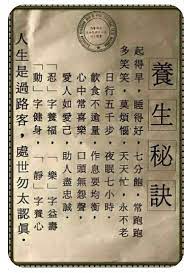 養生秘訣
起得早，睡得好，七分飽，常跑跑
多笑笑，莫煩惱，天天忙，永不老
日行五千步，夜眠七小時，
飲食不逾量，作息要均衡，
心中常喜樂，口頭無怨聲，
愛人如愛己，助人盡忠誠，
「忍」字養福，「樂」字益壽
「動」字健身，「靜」字養心
人生是過路客，處世勿太認真．